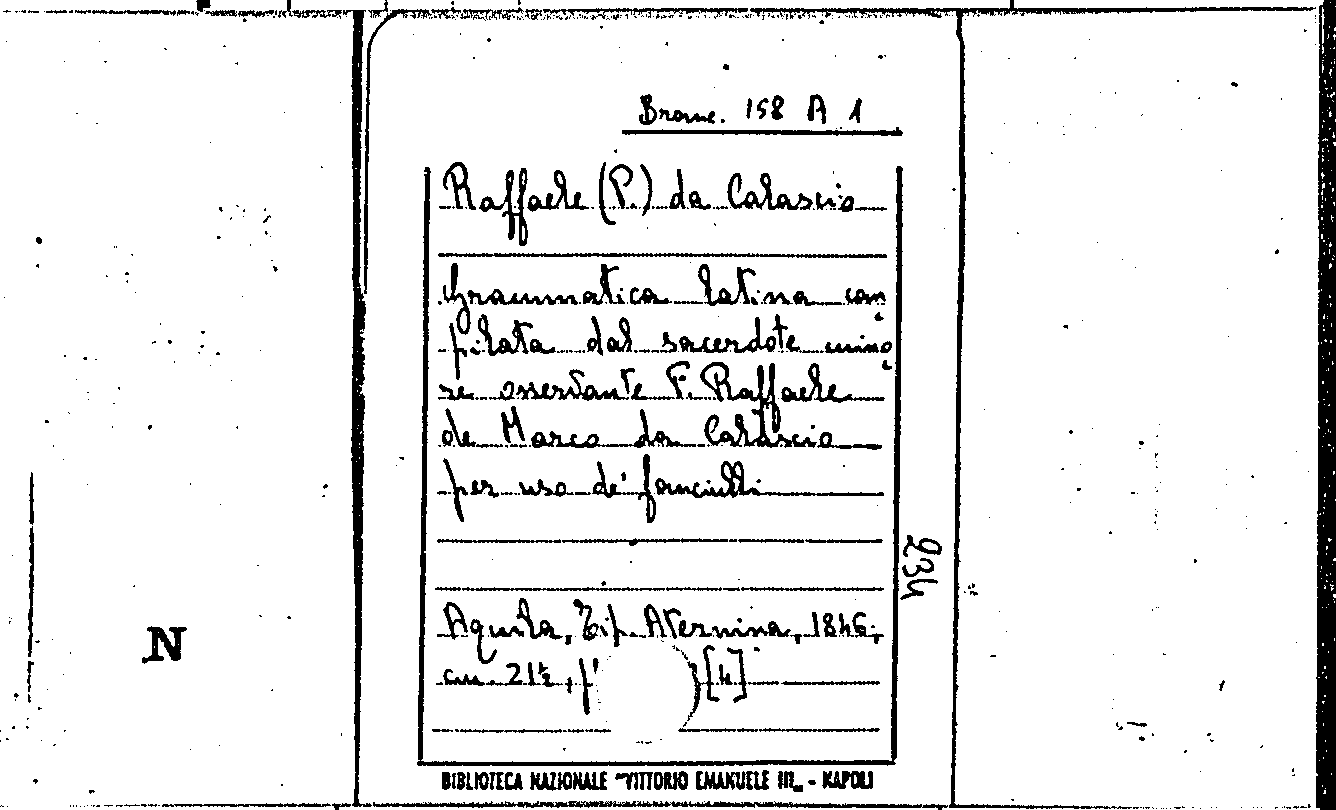 Branc. 158 A 1
Raffaele (P.) da Calascio
Grammatica latina com
pilata dal sacerdote mino
re osservante F. Raffaele
de Marco da Calascio
per uso de' fanciulli
234
Aquila, Tip. Aternina, 1846;
cm. 21½, p [4]
N
BIBLIOTECA NAZIONALE "VITTORIO EMANUELE III„ - NAPOLI